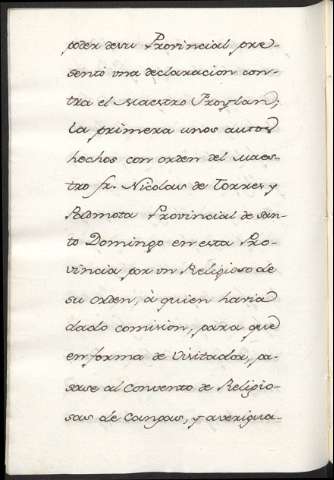 poder de su Provincial pre-
sentó una declaracion con-
tra el Maestro Froylan;
la primera unos autos
hechos con orden del Maes-
tro fr. Nicolas de Torres y
Palomota Provincial de San-
to Domingo en esta Pro-
vincia por un Religioso de
su orden, à quien havia
dado comision, para que
en forma de Visitador, pa-
sase al Convento de Religio-
sas de Cangas, y averigua-